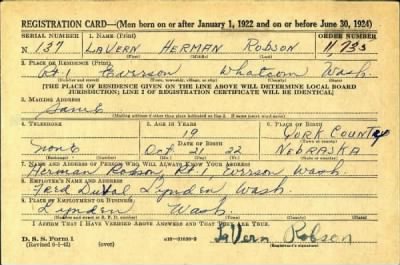 REGISTRATION CARD—(Men born on or after January 1, 1922 and on or before June 30, 1924)
SERIAL NUMBER 1. NAME (Print) ORDER NUMBER
N 137 LaVern Herman Robson 11,735
2. PLACE OF RESIDENCE (Print)
Rt. 1 Everson Whatcom Wash.
(Number and street) (Town, township, village, or city) (County) (State)
[THE PLACE OF RESIDENCE GIVEN ON THE LINE ABOVE WILL DETERMINE LOCAL BOARD
JURISDICTION; LINE 2 OF REGISTRATION CERTIFICATE WILL BE IDENTICAL]
3. MAILING ADDRESS
Same
[Mailing address if other than place indicated on line 2. If same, insert word same]
4. TELEPHONE 5. AGE IN YEARS 6. PLACE OF BIRTH
19 York County
DATE OF BIRTH
none Oct 21 22 Nebraska
(Exchange) (Number) (Mo.) (Day) (Yr.) (State or country)
7. NAME AND ADDRESS OF PERSON WHO WILL ALWAYS KNOW YOUR ADDRESS
Herman Robson, Rt. 1, Everson Wash.
8. EMPLOYER'S NAME AND ADDRESS
Ferd Lynden Wash.
9. PLACE OF EMPLOYMENT OR BUSINESS
Lynden Wash
(Number and street or R. F. D. number) (Town) (County) (State)
I AFFIRM THAT I HAVE VERIFIED ABOVE ANSWERS AND THAT THEY ARE TRUE.
D. S. S. Form 1
(over)
LaVern Robson
(Registrant's signature)